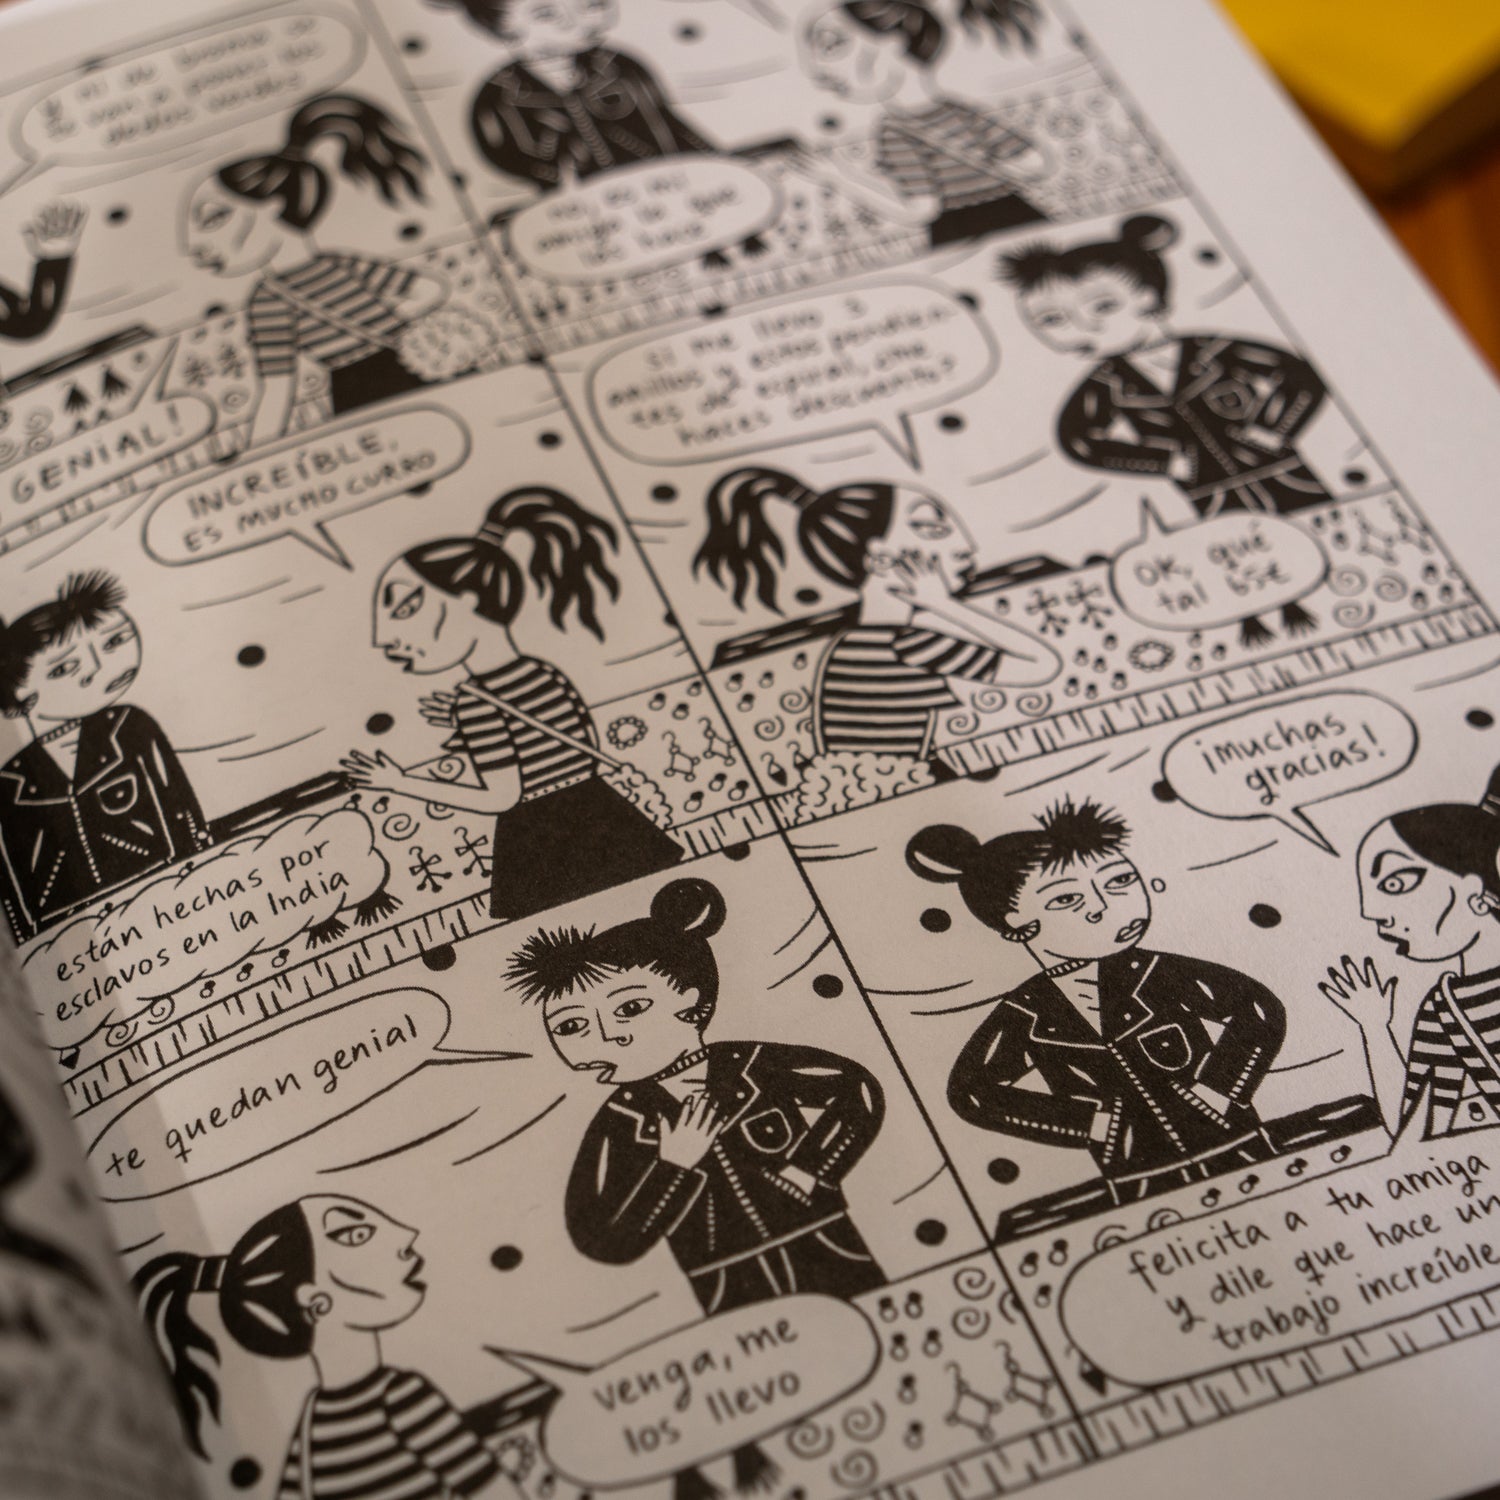 ni de broma
van a poner los
dedos verdes
GENIAL!
no, es mi
amiga la que
los hace
INCREÍBLE,
ES MUCHO CURRO
están hechas por
esclavos en la India
si me llevo 3
anillos y estos pendien-
tes de espiral, ¿me
haces descuento?
OK, qué
tal 65€
te quedan genial
venga, me
los llevo
¡muchas
gracias!
felicita a tu amiga
y dile que hace un
trabajo increíble